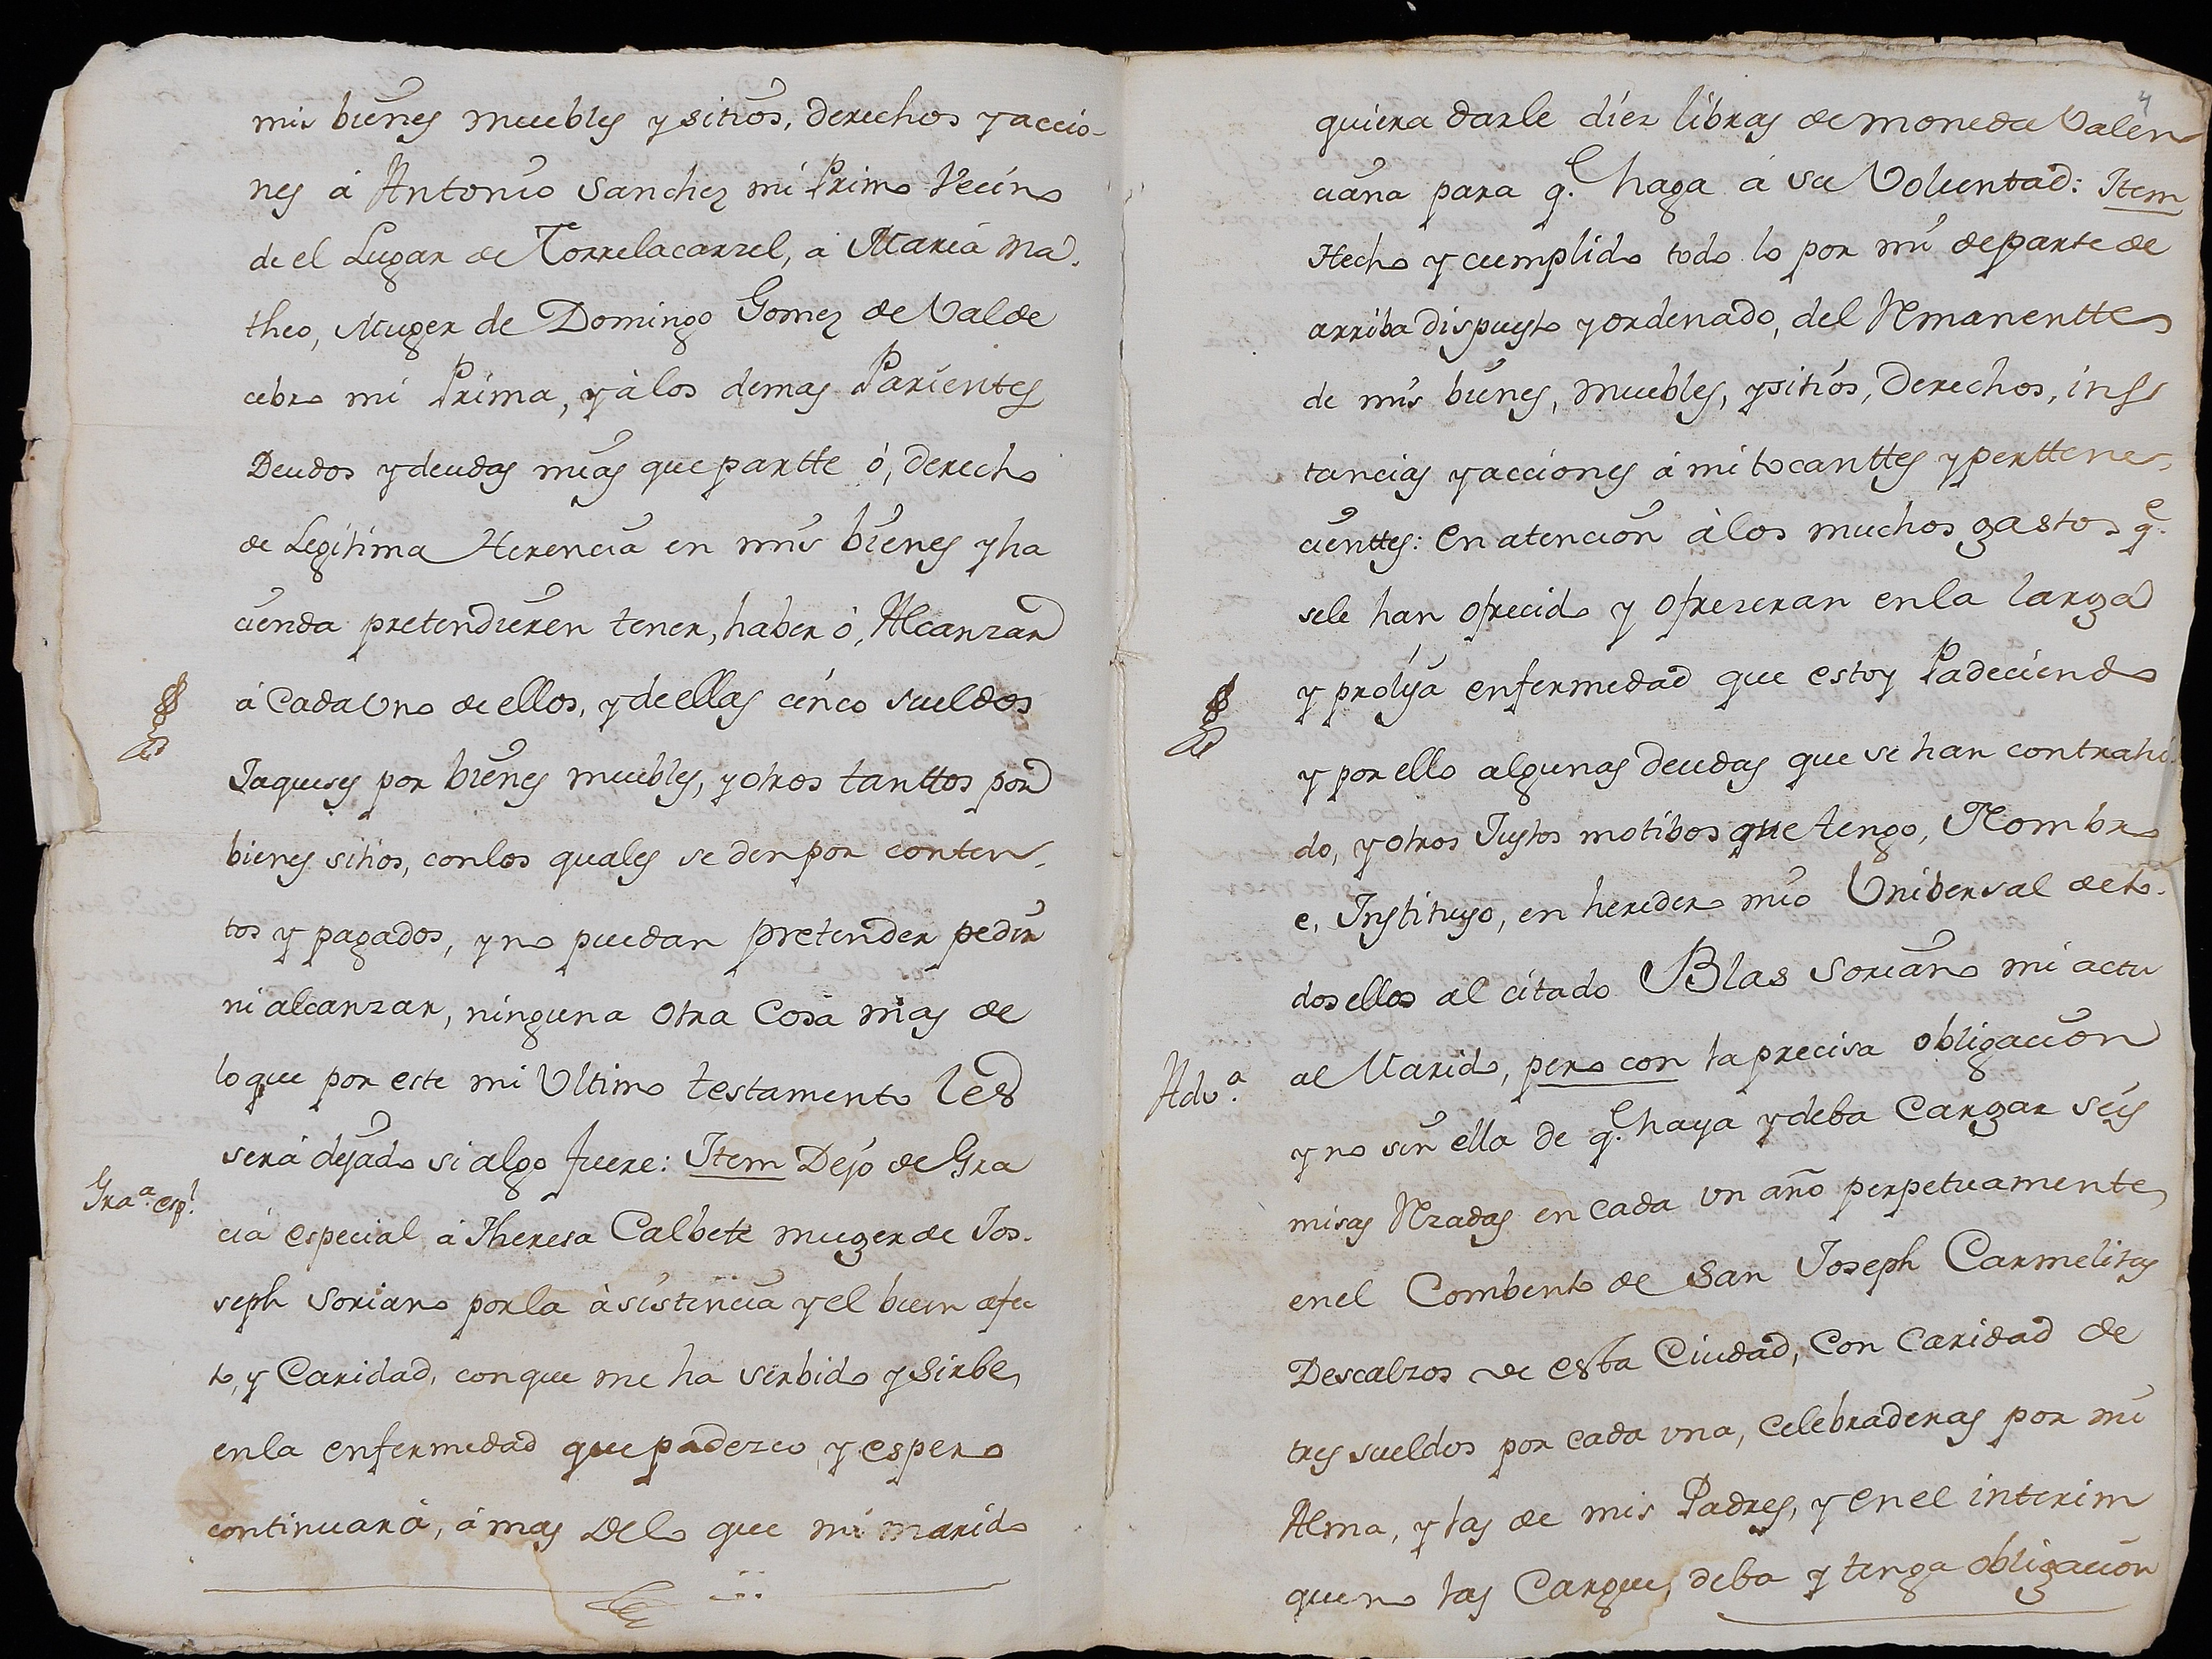 mis bienes muebles y sitios, derechos y accio-
nes á Antonio Sanchez mi Primo Vecino
de el Lugar de Torrelacarzel, a Maria Ma-
theo, Muger de Domingo Gomez de Valde
cebro mi Prima, y à los demas Parientes
Deudos y deudas mias que partte ó, derecho
de Legitima Herencia en mis bienes y ha
cienda pretendieren tener, haber ó, Alcanzar
á Cada Uno de ellos, y de ellas cinco sueldos
Jaqueses por bienes muebles, y otros tanttos por
bienes sitios, con los quales se den por conten-
tos y pagados, y no puedan pretender pedir
ni alcanzar, ninguna otra Cosa mas de
lo que por este mi Ultimo testamento les
será dejado si algo fuere: Item Dejo de Gra
Graª. espl.
cia especial á Theresa Calbete muger de Jos-
seph Soriano por la àsistencia y el buen afec
to, y Caridad, con que me ha serbido y Sirbe,
en la enfermedad que padezco y espero
continuará, á mas Delo que mi marido
4
quiera darle diez libras de moneda Valen
ciana para q.e haga á su Voluntad: Item
Hecho y cumplido todo lo por mi de parte de
arriba dispuesto y ordenado, del Rmanentte
de mis bienes, muebles, y sitios, Derechos, ins
tancias y acciones á mi tocanttes y perttene-
cienttes: en atencion à los muchos gastos q.e
sele han ofrecido y ofrezeran en la larga
y prolija enfermedad que estoy Padeciendo
y por ello algunas deudas que se han contrahi-
do, y otros Justos motibos que tengo, Nombro
e, Instituyo, en heredero mio Unibersal de to-
dos ellos al citado Blas Soriano mi actu
al Marido, pero con la precisa obligacion
Adv.ª
y no sin ella de q.e haya y deba Cargar seis
misas Rzadas en cada un año perpetuamente
en el Combento de San Joseph Carmelitas
Descalzos de esta Ciudad, Con Caridad de
tres sueldos por cada una, Celebraderas por mi
Alma, y las de mis Padres, y en el interim
que no las Cargue, deba y tenga obligacion